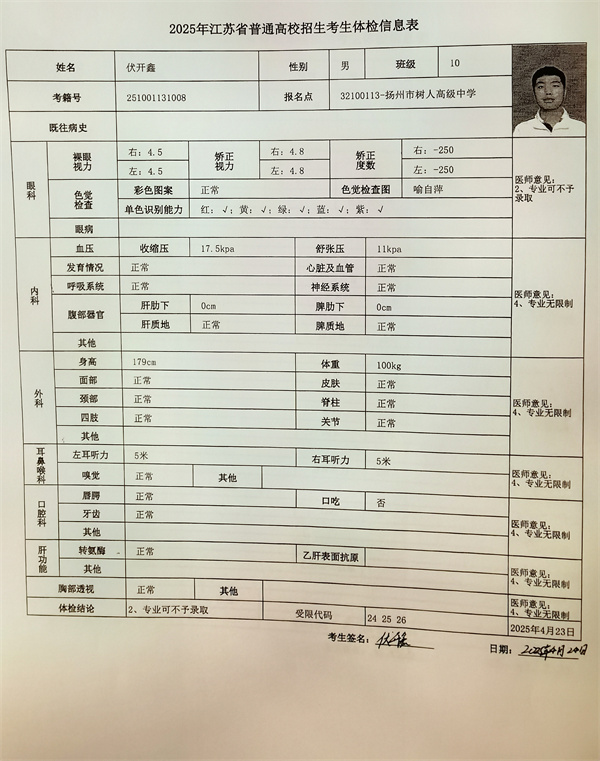 2025年江苏省普通高校招生考生体检信息表
姓名 伏开鑫 性别 男 班级 10
考籍号 251001131008 报名点 32100113-扬州市树人高级中学
既往病史
眼科 裸眼视力 右: 4.5 矫正视力 右: 4.8 矫正度数 右: -250
左: 4.5 左: 4.8 左: -250
色觉检查 彩色图案 正常 色觉检查图 喻自萍
单色识别能力 红: √; 黄: √; 绿: √; 蓝: √; 紫: √
眼病
医师意见:
2、专业可不予录取
内科 血压 收缩压 17.5kpa 舒张压 11kpa
发育情况 正常 心脏及血管 正常
呼吸系统 正常 神经系统 正常
腹部器官 肝肋下 0cm 脾肋下 0cm
肝质地 正常 脾质地 正常
其他
医师意见:
4、专业无限制
外科 身高 179cm 体重 100kg
面部 正常 皮肤 正常
颈部 正常 脊柱 正常
四肢 正常 关节 正常
其他
医师意见:
4、专业无限制
耳鼻喉科 左耳听力 5米 右耳听力 5米
嗅觉 正常 其他
医师意见:
4、专业无限制
口腔科 唇腭 正常 口吃 否
牙齿 正常
其他
医师意见:
4、专业无限制
肝功能 转氨酶 正常 乙肝表面抗原
其他
医师意见:
4、专业无限制
胸部透视 正常 其他
医师意见:
4、专业无限制
体检结论 2、专业可不予录取 受限代码 24 25 26
2025年4月23日
考生签名:
日期: 2025年4月24日